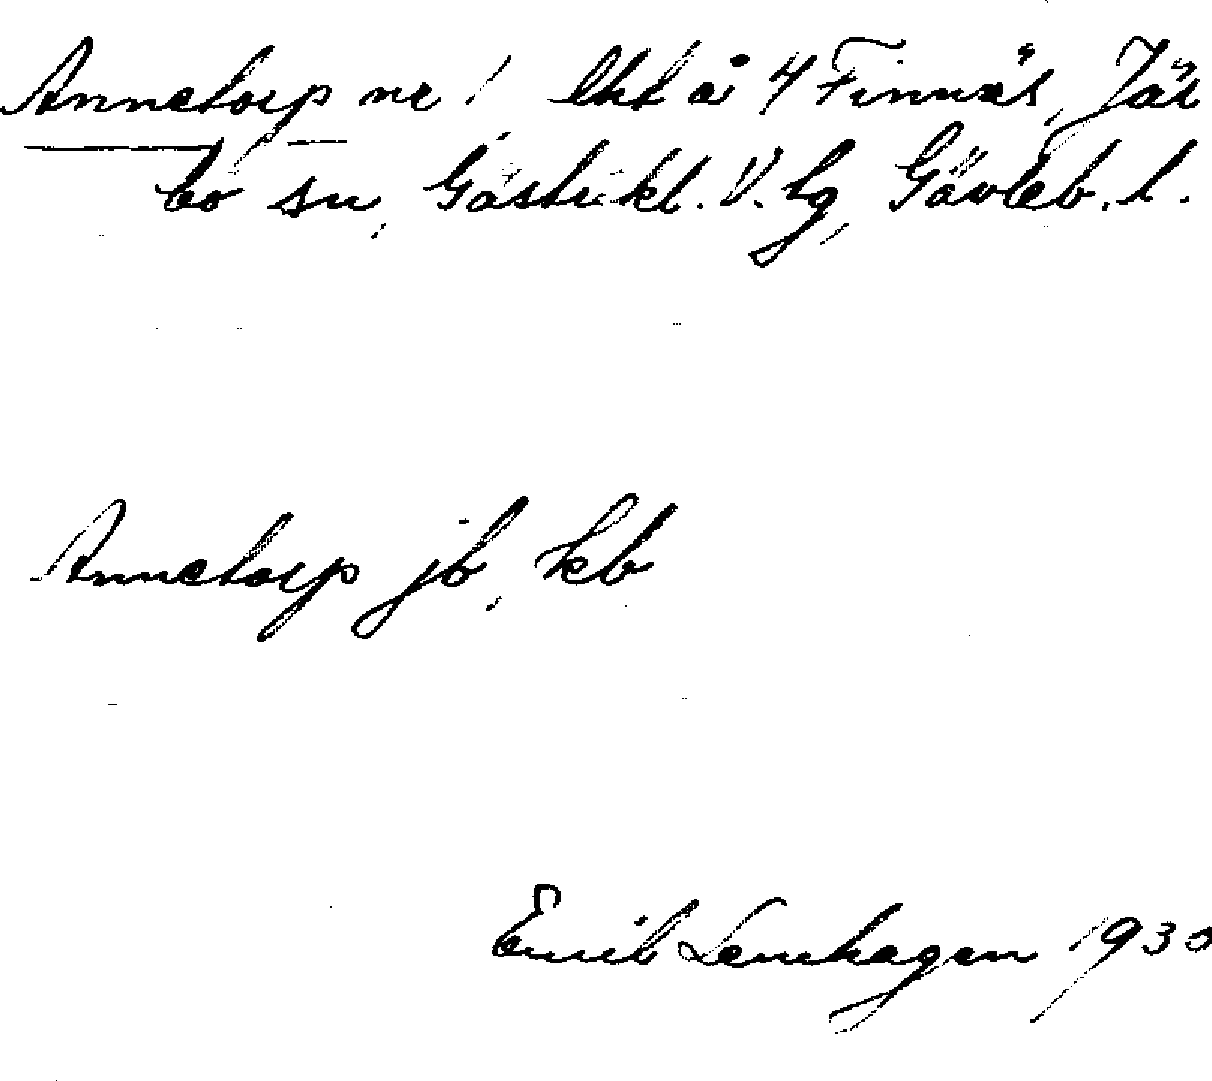 Annetorp nr 1 lht å 4 Finnäs, Jär
bo sn, Gästrikl. V. tg, Gävleb. l.
Annetorp jb, kb
Emil Lennhagen 1930